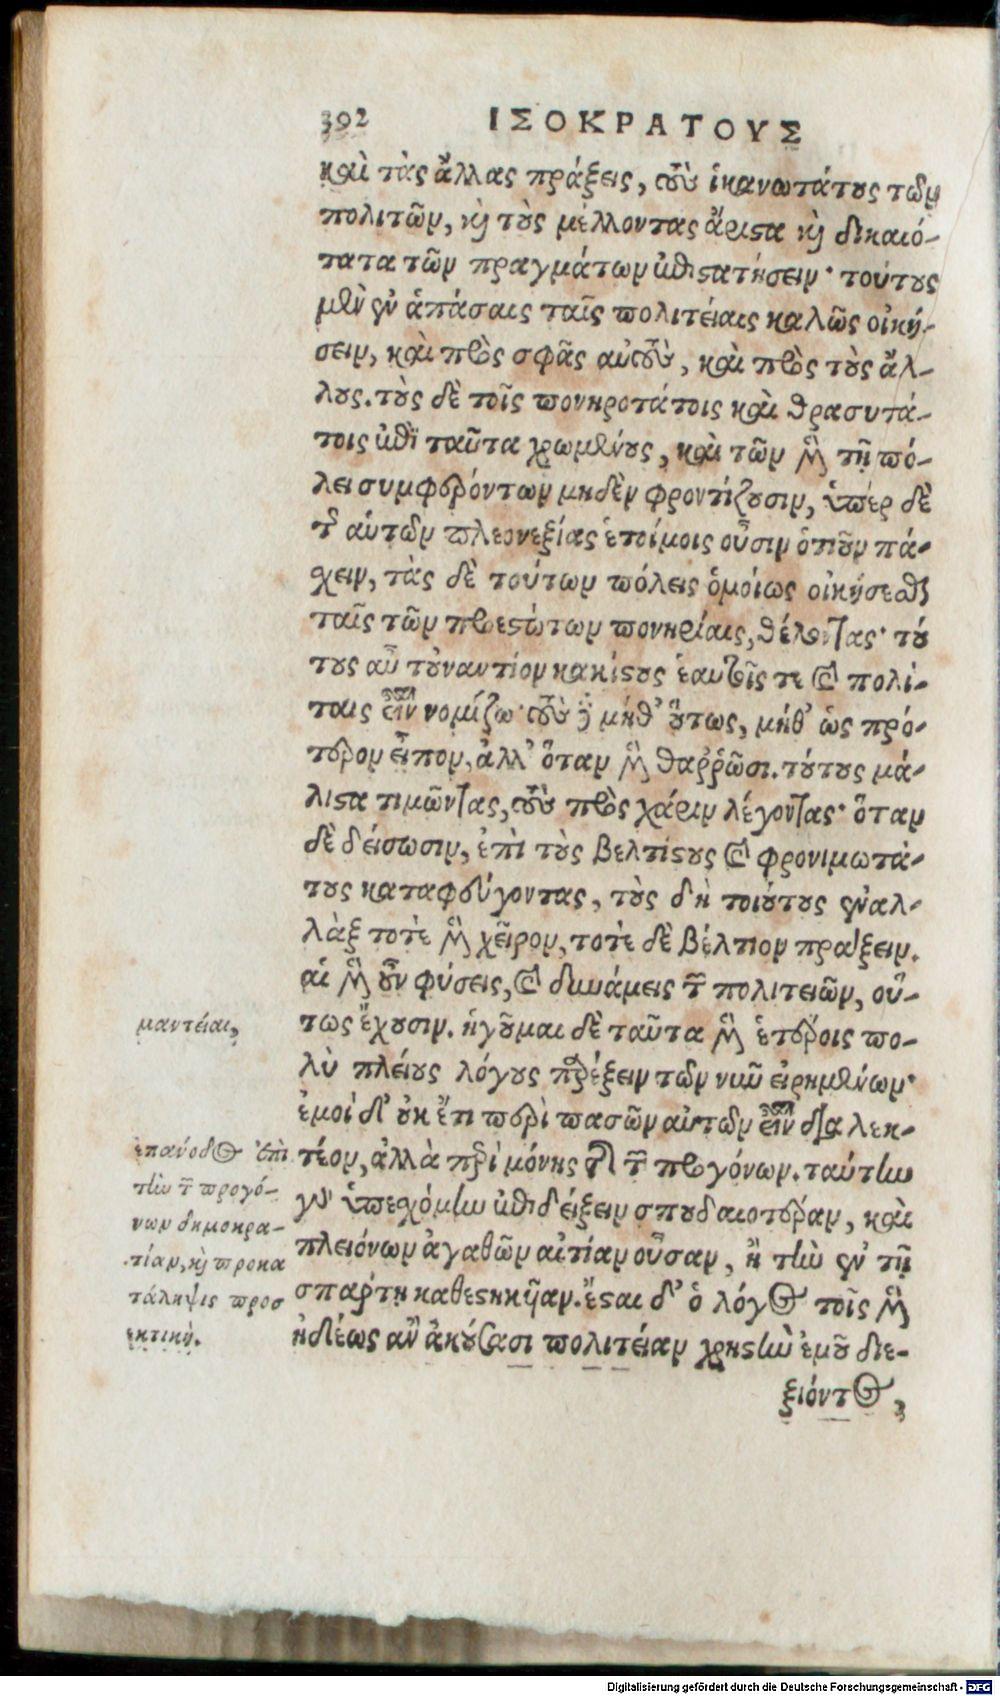 392 ΙΣΟΚΡΑΤΟΥΣ
καὶ τὰς ἄλλας πράξεις, τοὺς ἱκανωτάτους τῶν
πολιτῶν, καὶ τοὺς μέλλοντας ἄριστα καὶ δικαιό-
τατα τῶν πραγμάτων ἐπιστατήσειν· τούτους
μὲν ἐν ἁπάσαις ταῖς πολιτείαις καλῶς οἰκή-
σειν, καὶ πρὸς σφᾶς αὐτοὺς, καὶ πρὸς τοὺς ἄλ-
λους. τοὺς δὲ τοῖς πονηροτάτοις καὶ θρασυτά-
τοις ἐπὶ ταῦτα χρωμένους, καὶ τῶν μὲν τῇ πό-
λει συμφερόντων μηδὲν φροντίζουσιν, ὑπὲρ δὲ
τῆς αὑτῶν πλεονεξίας ἑτοίμοις οὖσιν ὁτιοῦν πά-
χειν, τὰς δὲ τούτων πόλεις ὁμοίως οἰκήσεσθαι
ταῖς τῶν προεστώτων πονηρίαις, θέλοντας· τού
τους αὖ τοὐναντίον κακίστους ἑαυτοῖς τε καὶ πολί-
ταις εἶναι νομίζω· τοὺς δὲ μήθ' οὕτως, μήθ' ὡς πρό-
τερον εἶπον, ἀλλ' ὅταν μὲν θαῤῥῶσι. τούτους μά-
λιστα τιμῶντας, τοὺς πρὸς χάριν λέγοντας· ὅταν
δὲ δείσωσιν, ἐπὶ τοὺς βελτίστους καὶ φρονιμωτά-
τους καταφεύγοντας, τοὺς δὴ τοιούτους ἐναλ-
λὰξ τοτὲ μὲν χεῖρον, τοτὲ δὲ βέλτιον πράξειν.
αἱ μὲν οὖν φύσεις, καὶ δυνάμεις τῶν πολιτειῶν, οὕ-
τως ἔχουσιν. ἡγοῦμαι δὲ ταῦτα μὲν ἑτέροις πο-
λὺ πλείους λόγους παρέξειν τῶν νῦν εἰρημένων·
ἐμοὶ δ' οὐκ ἔτι περὶ πασῶν αὐτῶν εἶναι διαλεκ-
τέον, ἀλλὰ περὶ μόνης τῆς τῶν προγόνων. ταύτην
γὰρ ὑπεσχόμην ἐπιδείξειν σπουδαιοτέραν, καὶ
πλειόνων ἀγαθῶν αἰτίαν οὖσαν, ἢ τὴν ἐν τῇ
σπάρτῃ καθεστηκυῖαν. ἔσται δ' ὁ λόγος τοῖς μὲν
ἡδέως ἂν ἀκούσασι πολιτείαν χρηστὴν ἐμοῦ διε-
ξιόντος,
μαντείαι,
ἐπάνοδος ἐπὶ
τὴν τῶν προγό-
νων δημοκρα-
τίαν, καὶ προκα
τάληψις προσ
εκτική.
Digitalisierung gefördert durch die Deutsche Forschungsgemeinschaft - DFG